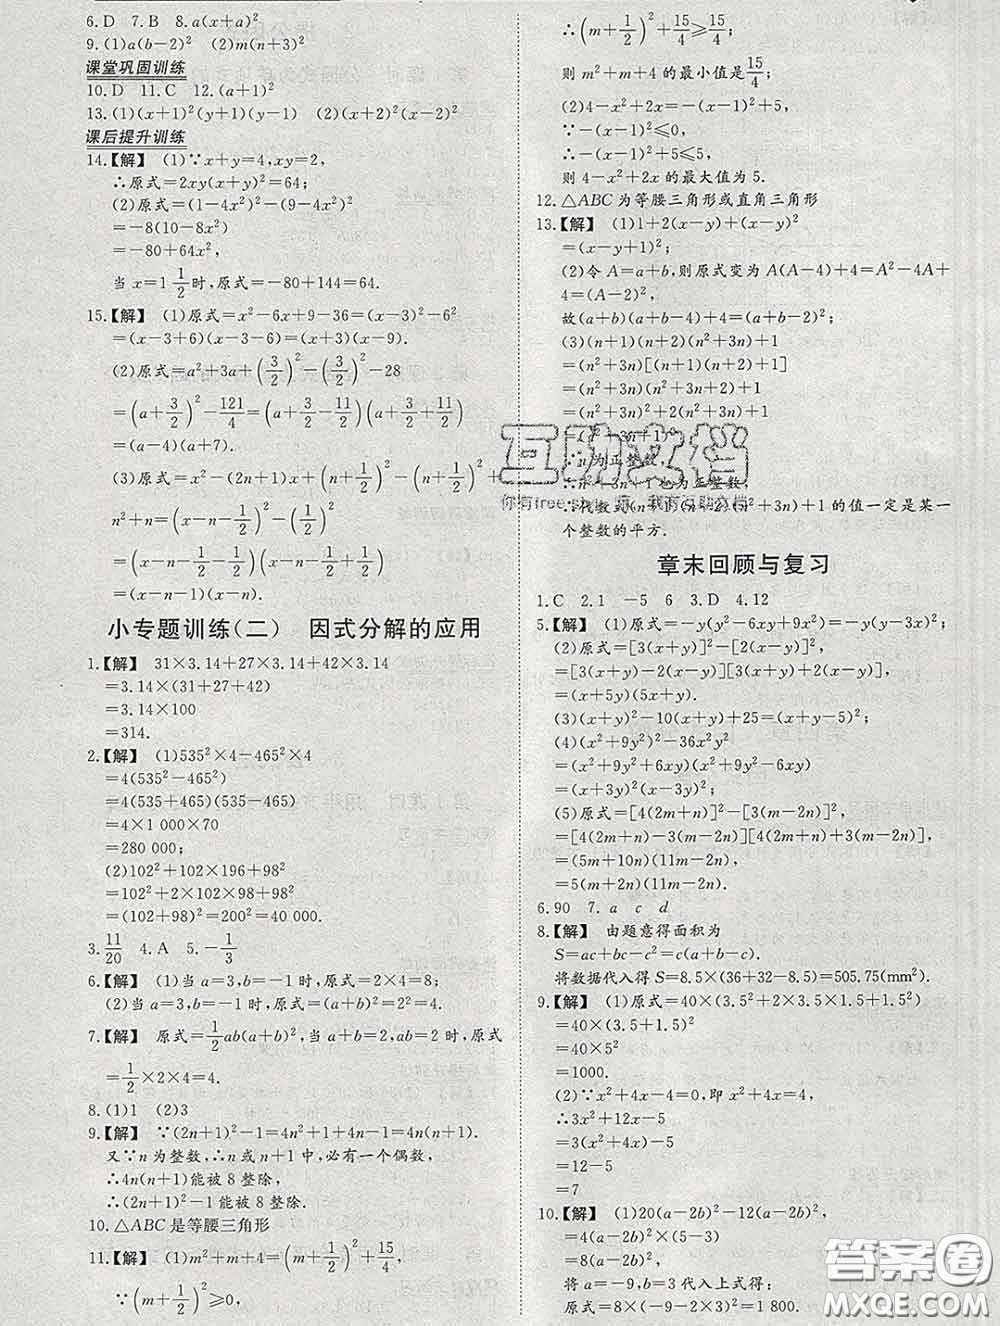 6.D 7.B 8.a(x+a)²
9.(1)a(b-2)² (2)m(n+3)²
课堂巩固训练
10.D 11.C 12.(a+1)²
13.(1)(x+1)²(y+1)(y-1) (2)(x+2)²(x-2)²
课后提升训练
14.【解】 (1)∵x+y=4,xy=2,
∴原式=2xy(x+y)²=64;
(2)原式=(1-4x²)²-(9-4x²)²
=-8(10-8x²)
=-80+64x²,
当 x=1 1/2 时,原式=-80+144=64.
15.【解】 (1)原式=x²-6x+9-36=(x-3)²-6²
=(x-3+6)(x-3-6)=(x+3)(x-9).
(2)原式=a²+3a+(3/2)²-(3/2)²-28
=(a+3/2)²-121/4=(a+3/2-11/2)(a+3/2+11/2)
=(a-4)(a+7).
(3)原式=x²-(2n+1)x+(n+1/2)²-(n+1/2)²+
n²+n=(x-n-1/2)²-(1/2)²
=(x-n-1/2-1/2)(x-n-1/2+1/2)
=(x-n-1)(x-n).
小专题训练(二) 因式分解的应用
1.【解】 31×3.14+27×3.14+42×3.14
=3.14×(31+27+42)
=3.14×100
=314.
2.【解】 (1)535²×4-465²×4
=4(535²-465²)
=4(535+465)(535-465)
=4×1 000×70
=280 000;
(2)102²+102×196+98²
=102²+2×102×98+98²
=(102+98)²=200²=40 000.
3. 11/20 4.A 5.-1/3
6.【解】 (1)当 a=3,b=-1 时,原式=2×4=8;
(2)当 a=3,b=-1 时,原式=(a+b)²=2²=4.
7.【解】 原式=1/2ab(a+b)²,当 a+b=2,ab=2 时,原式
=1/2×2×4=4.
8.(1)1 (2)3
9.【解】 ∵(2n+1)²-1=4n²+1+4n-1=4n(n+1).
又∵n 为整数,∴n 或 n+1 中,必有一个偶数,
∴4n(n+1)能被 8 整除.
∴(2n+1)²-1 能被 8 整除.
10.△ABC 是等腰三角形
11.【解】 (1)m²+m+4=(m+1/2)²+15/4,
∵(m+1/2)²≥0,
∴(m+1/2)²+15/4≥15/4;
则 m²+m+4 的最小值是 15/4;
(2)4-x²+2x=-(x-1)²+5,
∵-(x-1)²≤0,
∴-(x-1)²+5≤5,
则 4-x²+2x 的最大值为 5.
12.△ABC 为等腰三角形或直角三角形
13.【解】 (1)1+2(x-y)+(x-y)²
=(x-y+1)²;
(2)令 A=a+b,则原式变为 A(A-4)+4=A²-4A+
4=(A-2)²,
故(a+b)(a+b-4)+4=(a+b-2)²;
(3)(n+1)(n+2)(n²+3n)+1
=(n²+3n)[(n+1)(n+2)]+1
=(n²+3n)(n²+3n+2)+1
=(n²+3n)²+2(n²+3n)+1
=(n²+3n+1)².
∵n 为正整数,
∴n²+3n+1 也为正整数,
∴代数式(n+1)(n+2)(n²+3n)+1 的值一定是某一
个整数的平方.
章末回顾与复习
1.C 2.1 -5 6 3.D 4.12
5.【解】 (1)原式=-y(y²-6xy+9x²)=-y(y-3x)²;
(2)原式=[3(x+y)]²-[2(x-y)]²
=[3(x+y)-2(x-y)][3(x+y)+2(x-y)]
=(x+5y)(5x+y).
(3)(x+y)²-10(x+y)+25=(x+y-5)²;
(4)(x²+9y²)²-36x²y²
=(x²+9y²+6xy)(x²+9y²-6xy)
=(x+3y)²(x-3y)²;
(5)原式=[4(2m+n)]²-[3(m-2n)]²
=[4(2m+n)-3(m-2n)][4(2m+n)+3(m-2n)]
=(5m+10n)(11m-2n)
=5(m+2n)(11m-2n).
6.90 7.a c d
8.【解】 由题意得面积为
S=ac+bc-c²=c(a+b-c).
将数据代入得 S=8.5×(36+32-8.5)=505.75(mm²).
9.【解】 (1)原式=40×(3.5²+2×3.5×1.5+1.5²)
=40×(3.5+1.5)²
=40×5²
=1000.
(2)∵x²+4x-4=0,即 x²+4x=4,
∴3x²+12x-5
=3(x²+4x)-5
=12-5
=7
10.【解】 (1)20(a-2b)²-12(a-2b)²,
=(a-2b)²×(20-12)
=8(a-2b)²,
将 a=-9,b=3 代入上式得:
原式=8×(-9-2×3)²=1 800.
互助文档
答案圈
MXQE.COM